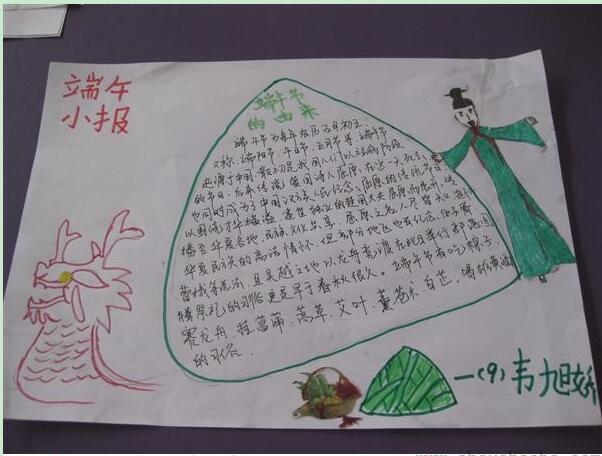 端午
小报
端午节
的由来
端午节为每年农历五月初五，
又称端阳节、午日节、五月节等。端午节
起源于中国，最初是我国人们以祛病防疫
的节日，后来传说爱国诗人屈原在这一天死去，
也同时成为了中国汉族人民纪念屈原的传统节日
以围绕才华横溢、遗世独立的楚国大夫屈原而展开，
播至华夏各地，民族文化共享，屈原之名人尽皆知，
华夏民族的高洁情怀。但部分地区也有
曹娥等说法，且吴越之地以龙舟竞渡在此日举行部落图
腾祭礼的习俗更是早于春秋很久。端午节有吃粽子，
赛龙舟，挂菖蒲、蒿草、艾叶，薰苍术、白芷，喝雄黄酒
的习俗。
一(9) 韦旭